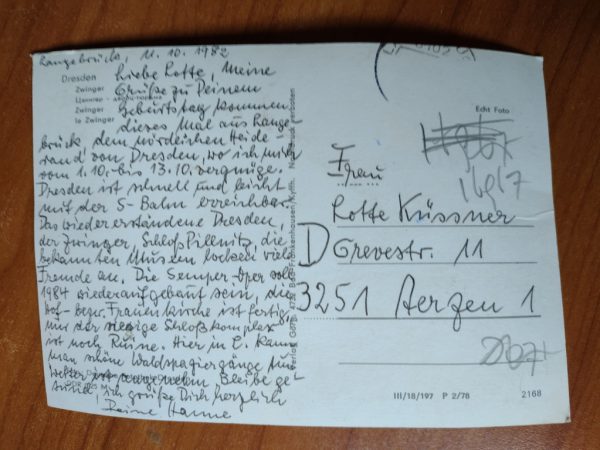 Langebrück, 11.10.1982
Liebe Lotte, Meine
Grüße zu Deinem
Geburtstag kommen
dieses Mal aus Lange
brück, dem nördlichen Heide
rand von Dresden, wo ich mich
vom 1.10.-bis 13.10. vergnüge.
Dresden ist schnell und leicht
mit der S-Bahn erreichbar.
Das wiedererstandene Dresden,
der Zwinger, Schloß Pillnitz, die
bekannten Museen locken viele
Fremde an. Die Semper-Oper soll
1984 wiederaufgebaut sein, die
Hof- bezw. Frauenkirche ist fertig,
nur der riesige Schloßkomplex
ist noch Ruine. Hier in L. kann
man schöne Waldspaziergänge
Wetter ist angenehm. Bleibe ge
sund, ich grüße Dich herzlich
Deine Hanne
Dresden
Zwinger
Zwinger
le Zwinger
Echt Foto
Frau
Lotte Küssner
Grevestr. 11
D 3251 Aerzen 1
III/18/197 P 2/78
2168